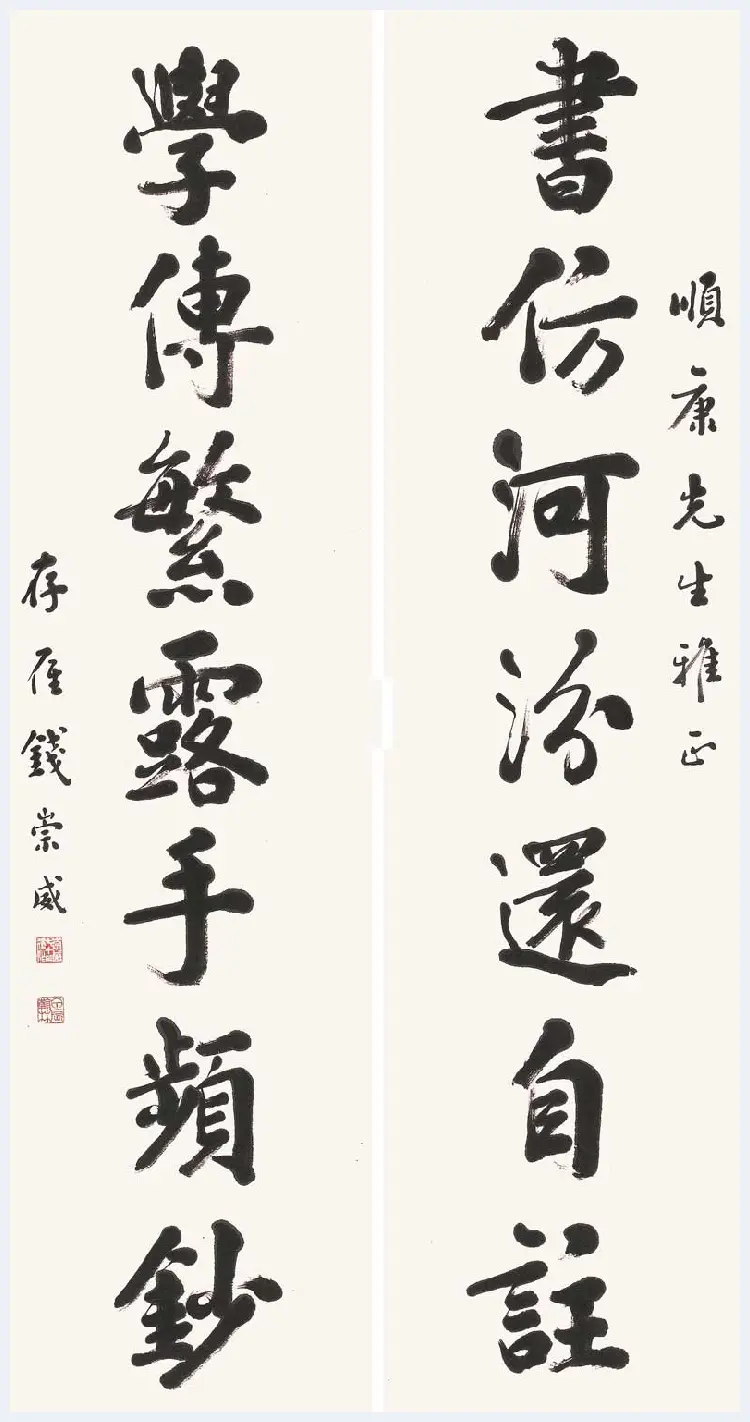 順康先生雅正
書仿河汾還自註
學傳繁露手頻鈔
存雁錢崇威